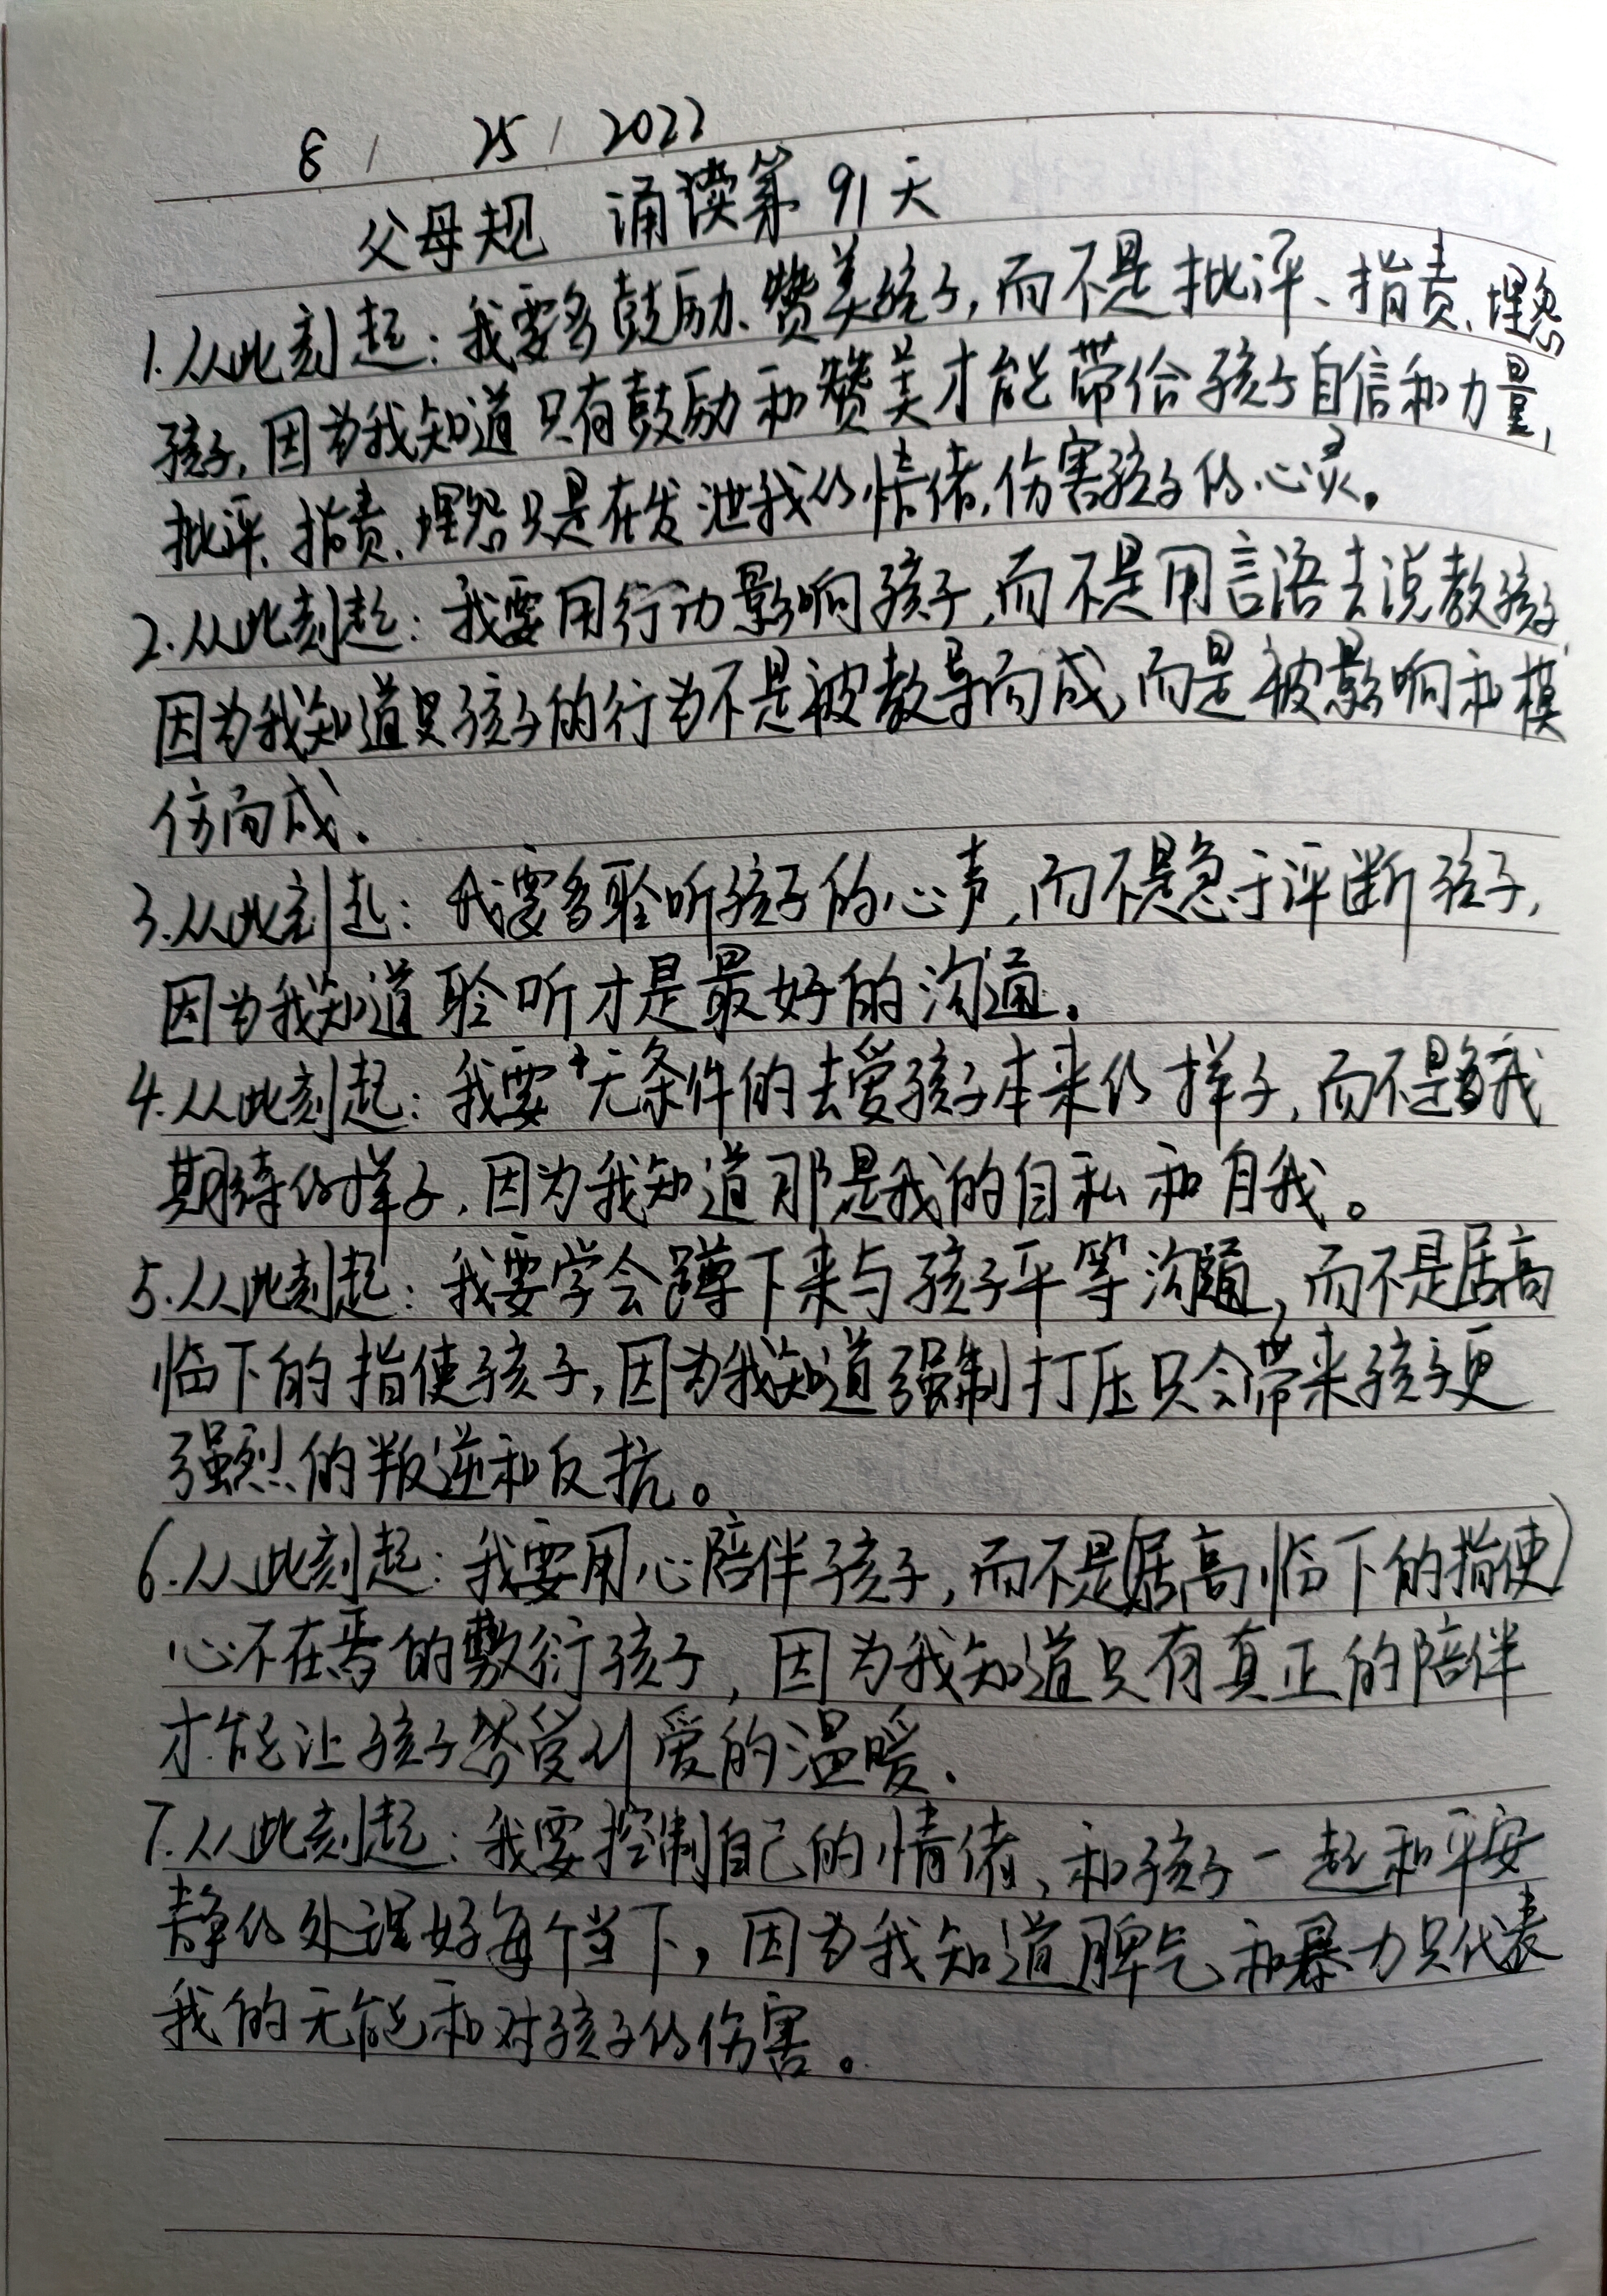 8 / 25 / 2022
父母规 诵读第91天
1.从此刻起：我要多鼓励、赞美孩子,而不是批评、指责、埋怨
孩子,因为我知道只有鼓励和赞美才能带给孩子自信和力量,
批评、指责、埋怨只是在发泄我的情绪,伤害孩子的心灵。
2.从此刻起：我要用行动影响孩子,而不是用言语去说教孩子,
因为我知道只孩子的行为不是被教导而成,而是被影响和模
仿而成.
3.从此刻起：我要多聆听孩子的心声,而不是急于评断孩子,
因为我知道聆听才是最好的沟通.
4.从此刻起：我要无条件的去爱孩子本来的样子,而不是我
期待的样子,因为我知道那是我的自私和自我。
5.从此刻起：我要学会蹲下来与孩子平等沟通,而不是居高
临下的指使孩子,因为我知道强制打压只会带来孩子更
强烈的叛逆和反抗。
6.从此刻起：我要用心陪伴孩子,而不是(居高临下的指使)
心不在焉的敷衍孩子,因为我知道只有真正的陪伴
才能让孩子感受到爱的温暖.
7.从此刻起：我要控制自己的情绪、和孩子一起和平安
静的处理好每个当下,因为我知道脾气和暴力只代表
我的无能和对孩子的伤害。